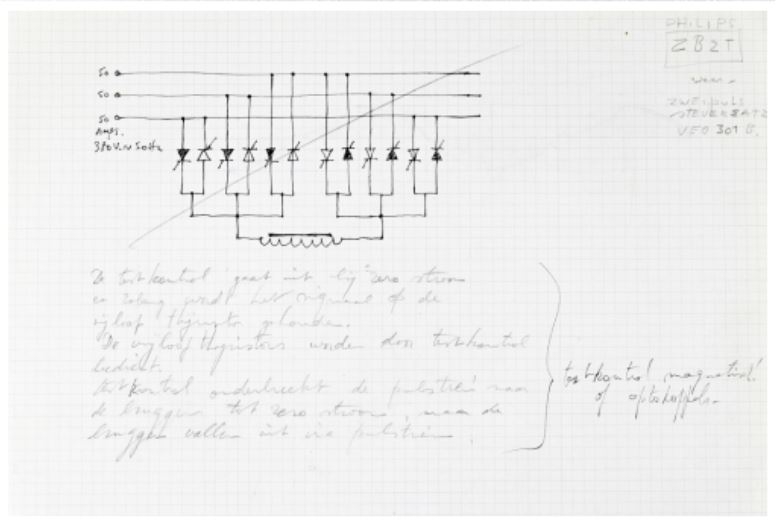 PHILIPS
ZB2T
50
50
50
Amps.
380V.~50Hz
ZWEIPULS
STEUERSATZ
VEO 301 B.
De testkontrol gaat uit bij zero stroom
en zolang wordt het signaal op de
vrijloop thyristor gehouden.
De vrijloop thyristors worden door testkontrol
bedient.
testkontrol onderbreekt de pulstrein naar
de bruggen tot zero stroom, maar de
bruggen vallen uit via pulstrein
testkontrol magnetisch
of optokoppels